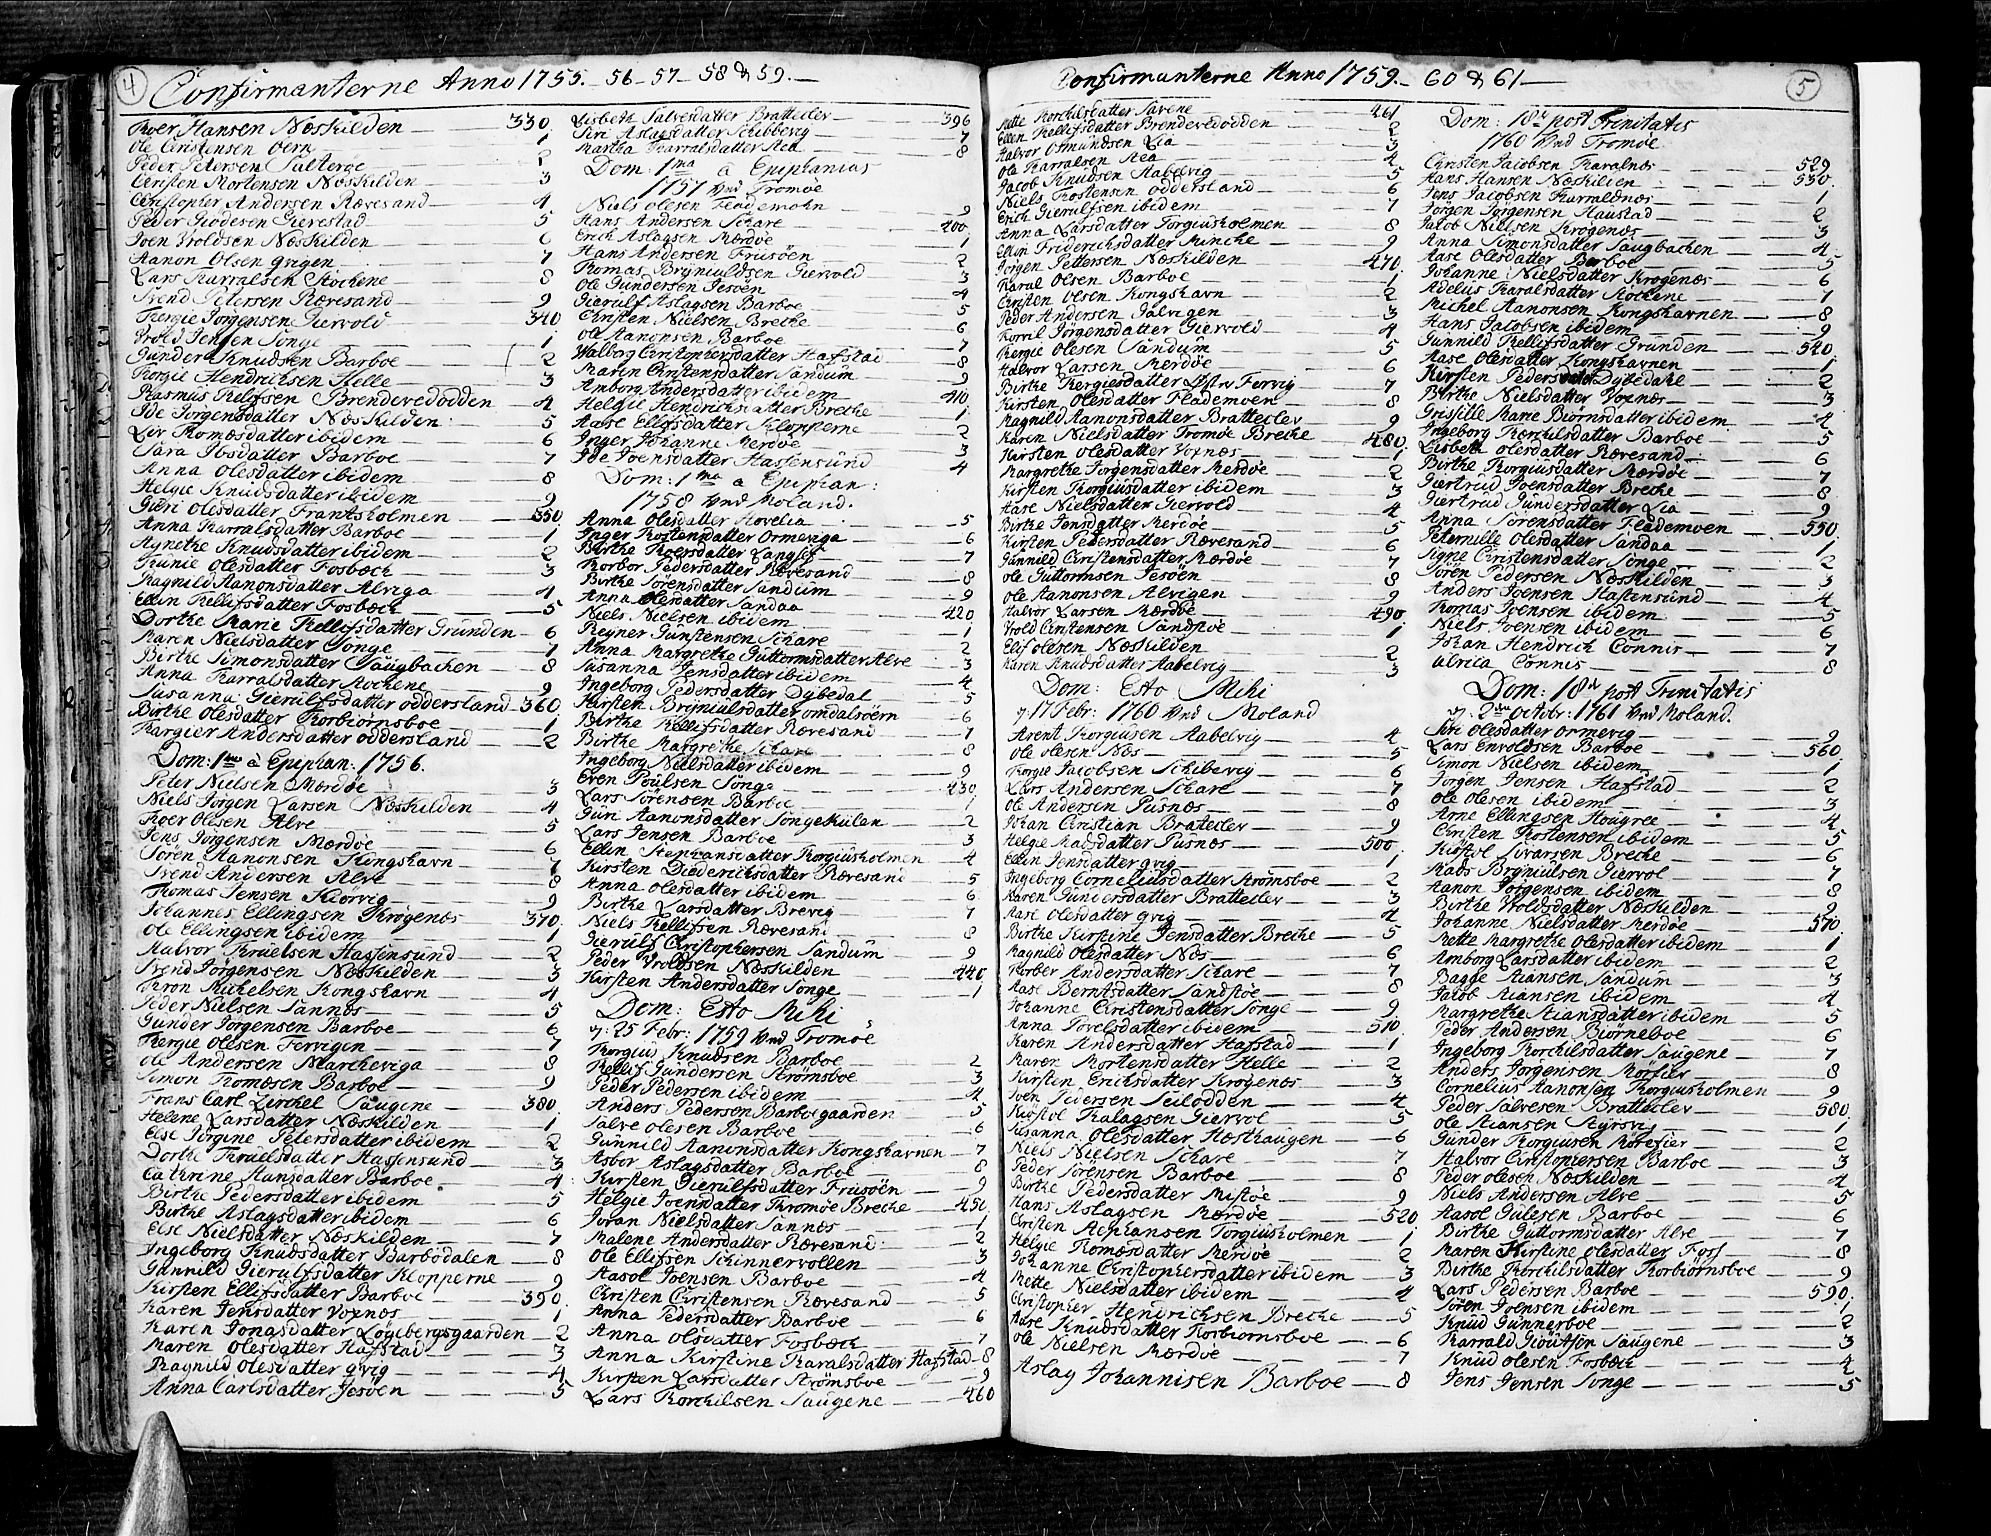 4
Confirmanterne Anno 1755. 56 - 57 - 58 & 59.
Roer Hansen Næskilden 330
Ole Christensen 1
Peder Petersen Salterøe 2
Christen Mortensen Næskilden 3
Christopher Andersen Rævesand 4
Peder Giødesen Gierestad 5
Joen Vroldsen Næskilden 6
Aanon Olsen gvigen 7
Lars Harralsen Stochene 8
Svend Petersen Rævesand 9
Tergie Jørgensen Giervold 340
Vrold Jensen Songe 1
Gunder Knudsen Barboe 2
Torgie Hendrichsen Helle 3
Rasmus Kelefsen Brendevedodden 4
Ide Jørgensdatter Næskilden 5
Liv Thomæsdatter ibidem 6
Sara Ibsdatter Barboe 7
Anna Olesdatter ibidem 8
Helgie Knudsdatter ibidem 9
Guri Olesdatter Frantsholmen 350
Anna Harralsdatter Barboe 1
Agnethe Knudsdatter ibidem 2
Gunie Olesdatter Fosbæch 3
Ragnild Aanonsdatter Alviga 4
Ellin Kellifsdatter Fosbæch 5
Dorthe Marie Kellifsdatter Grunden 6
Karen Nielsdatter Songe 7
Birthe Simonsdatter Saugbachen 8
Anna Harralsdatter Stochene 9
Susanna Gierulfsdatter oddersland 360
Birthe Olesdatter Torbiørnsboe 1
Targier Andersdatter oddersland 2
Dom: 1ma à Epiphan: 1756.
Peter Nielsen Mærdøe 3
Niels Jørgen Larsen Næskilden 4
Roer Olesen Alve 5
Jens Jørgensen Mærdøe 6
Søren Aanonsen Kongshavn 7
Svend Andersen Alve 8
Thomas Jensen Kiørvig 9
Johannes Ellingsen Krøgenæs 370
Ole Ellingsen ibidem 1
Halvor Truelsen Hassensund 2
Svend Jørgensen Næskilden 3
Tron Michelsen Kongshavn 4
Peder Nielsen Sannæs 5
Gunder Jørgensen Barboe 6
Tergie Olesen Fervigen 7
Ole Andersen Marcheviga 8
Simon Thomæsen Barboe 9
Frans Carl Zirchel Saugene 380
Helene Larsdatter Næskilden 1
Else Jørgine Petersdatter ibidem 2
Dorthe Truelsdatter Hassensund 3
Cathrine Hansdatter Barboe 4
Birthe Pedersdatter ibidem 5
Birthe Aslagsdatter ibidem 6
Else Nielsdatter Næskilden 7
Ingeborg Knudsdatter Barbodalen 8
Gunnild Gierulfsdatter Klopperne 9
Kirsten Ellifsdatter Barboe 390
Karen Jensdatter Voxnæs 1
Karen Jonasdatter Løgebergsgaarden 2
Maren Olesdatter Hafstad 3
Ragnild Olesdatter gvig 4
Anna Carlsdatter Jesøen 5
Lisbeth Salvesdatter Bratteclev 396
Siri Aslagsdatter Schibbevig 7
Martha Harralsdatter Aea 8
Dom: 1ma à Epiphanias
1757 ved Tromøe
Niels Olesen Flademoen 9
Hans Andersen Schare 400
Erich Aslagsen Mærdøe 1
Hans Andersen Frusøen 2
Thomas Brynuldsen Giervold 3
Ole Gundersen Jesøen 4
Gierulf Aslagsen Barboe 5
Christen Nielsen Breche 6
Ole Aanonsen Barboe 7
Walborg Christophersdatter Hafstad 8
Maren Christensdatter Sandum 9
Amborg Andersdatter ibidem 410
Helgie Hendrichsdatter Breche 1
Aase Ellefsdatter Klopperne 2
Inger Johanne Merdøe 3
Ide Joensdatter Hassensund 4
Dom: 1ma a Epiphan:
1758 ved Moland.
Anna Olesdatter Hovelia 5
Inger Tostensdatter Ormeviga 6
Birthe Roersdatter Langsef 7
Torbor Pedersdatter Rævesand 8
Birthe Sørensdatter Sandum 9
Anna Olesdatter Sandaa
Niels Nielsen ibidem 420
Reyner Gunstensen Schare 1
Anna Margrethe Guttormsdatter Alve 2
Susanna Jensdatter ibidem 3
Ingeborg Pedersdatter Dybedal 4
Kirsten Brynulsdatter omdalsøern 5
Birthe Kellifsdatter Rævesand 6
Birthe Margrethe Schare 7
Ingeborg Nielsdatter ibidem 8
Even Poulsen Songe 9
Lars Sørensen Barboe 430
Guri Aanonsdatter Songekulen 2
Lars Jensen Barboe 3
Ellin Stephansdatter Torgiusholmen 4
Kirsten Diederichsdatter Rævesand 5
Anna Olesdatter ibidem 6
Birthe Larsdatter Brevig 7
Niels Kellifsen Rævesand 8
Gierulf Christophersen Sandum 9
Peder Vroldsen Næskilden 440
Kirsten Andersdatter Songe 1
Dom: Esto Mihi
ɔ: 25 Febr: 1759 ved Tromøe
Torgius Knudsen Barboe 2
Kellif Gundersen Strømsboe 3
Peder Pedersen ibidem 4
Anders Pedersen Barboegaarden 5
Salve Olesen Barboe 6
Gunnild Aanonsdatter Kongshavnen 7
Asbor Aslagsdatter Barboe 8
Kirsten Gierulfsdatter Frusøen 9
Helgie Joensdatter Tromøe Breche 450
Joran Nielsdatter Sannæs 1
Malene Andersdatter Rævesand 2
Ole Ellifsen Schinnervollen 3
Aasol Joensen Barboe 4
Christen Christensen Rævesand 5
Anna Pedersdatter Barboe 6
Anna Olesdatter Fosbæch 7
Anna Kirstine Haralsdatter Hafstad 8
Kirsten Larsdatter Strømsboe 9
Lars Torchilsen Saugene 460
Confirmanterne Anno 1759. 60 & 61
5
Mette Torchilsdatter Savene 461
Ellen Kellifsdatter Brendevedodden 2
Halvor Osmundsen Lia 3
Ole Harralsen Aea 4
Jacob Knudsen Aabelvig 5
Niels Tostensen oddersland 6
Erich Gierulfsen ibidem 7
Anna Larsdatter Torgiusholmen 8
Ellin Friderichsdatter Munche 9
Jørgen Pettersen Næskilden 470
Haral Olsen Barboe 1
Christen Olsen Kongshavn 2
Peder Andersen Salvigen 3
Torril Jørgensdatter Giervold 4
Tergie Olesen Sandum 5
Halvor Larsen Merdøe 6
Birthe Tergiesdatter Østre Fervig 7
Kirsten Olesdatter Flademoen 8
Magnild Aanonsdatter Bratteclev 9
Karen Nielsdatter Tromøe Breche 480
Kirsten Olesdatter Voxnæs 1
Margrethe Jørgensdatter Merdøe 2
Kirsten Torgiusdatter ibidem 3
Aase Nielsdatter Giervold 4
Birthe Jensdatter Merdøe 5
Kirsten Pedersdatter Rævesand 6
Gunnild Christensdatter Mærdøe 7
Ole Guttormsen Jesøen 8
Ole Aanonsen Alvigen 9
Halvor Larsen Mærdøe 490
Vrold Christensen Sandstøe 1
Elif Olesen Næskilden 2
Karen Knudsdatter Aabelvig 3
Dom: Esto Mihi
ɔ: 17 Febr: 1760 ved Moland
Arent Torgiusen Aabelvig 4
Ole Olesen Næs 5
Torgie Jacobsen Schibevig 6
Lars Andersen Schare 7
Ole Andersen Pusnæs 8
Johan Christian Brateclev 9
Helgie Madsdatter Pusnæs 500
Ellin Jensdatter gvig 1
Ingeborg Corneliusdatter Strømsboe 2
Karen Gundersdatter Bratteclev 3
Aase Olesdatter gvig 4
Birthe Kirstine Jensdatter Breche 5
Magnild Olesdatter Næs 6
Torber Andersdatter Schare 7
Aase Berntsdatter Sandstøe 8
Johanne Christensdatter Songe 9
Anna Povelsdatter ibidem 510
Karen Andersdatter Hafstad 1
Maren Mortensdatter Helle 2
Kirsten Erichsdatter Krogenæs 3
Joen Pedersen Seilodden 4
Kiøstol Thalagsen Giervol 5
Susanna Olesdatter Hæsthaugen 6
Niels Nielsen Schare 7
Peder Sørensen Barboe 8
Birthe Pedersdatter Mistøe 9
Hans Aslagsen Mærdøe 520
Christen Stephansen Torgiusholmen 1
Helgie Thomæsdatter Merdøe 2
Johanne Christophersdatter ibidem 3
Mette Nielsdatter ibidem 4
Christopher Hendrichsen Breche 5
Aase Knudsdatter Torbiornsboe 6
Ole Nielsen Mærdøe 7
Aslag Johannisen Barboe 8
Dom: 18de post Trinitatis
1760 ved Tromøe
Christen Jacobsen Haralnæs 529
Hans Hansen Næskilden 530
Jens Jacobsen Harraldnæs 1
Jørgen Jørgensen Haustad 2
Jacob Nielsen Krøgenæs 3
Anna Simonsdatter Saugbachen 4
Aase Olesdatter Barboe 5
Johanne Nielsdatter Krogenæs 6
Adelus Haralsdatter Stochene 7
Michel Aanonsen Kongshavnen 8
Hans Jacobsen ibidem 9
Gunnild Kellifsdatter Grunden 540
Aase Olesdatter Kongshavnen 1
Kirsten Pedersdatter Dybedahl 2
Birthe Nielsdatter Voxnæs 3
Grissille Marie Biørnsdatter ibidem 4
Ingeborg Torchilsdatter Barboe 5
Lisbeth Olesdatter Rævesand 6
Birthe Torgiusdatter Mærdøe 7
Giertrud Joensdatter Breche 8
Giertrud Gundersdatter Lia 9
Anna Sørensdatter Flademoen 550
Peternille Olesdatter Sandaa 1
Signe Christensdatter Songe 2
Søren Pedersen Næskilden 3
Anders Joensen Hastensund 4
Thomas Joensen ibidem 5
Niels Joensen ibidem 6
Johan Hendrich Connis 7
Ulrica Connis 8
Dom: 18de post Trinitatis
ɔ: 2den Octobr: 1761 ved Moland.
Siri Olesdatter Ormevig 9
Lars Envoldsen Barboe 560
Simon Nielsen ibidem 1
Jørgen Jensen Hafstad 2
Ole Olesen ibidem 3
Arne Ellingsen Hougree 4
Christen Tostensen ibidem 5
Kiøstol Sivarsen Breche 6
Mads Brynulsen Giervol 7
Aanon Jørgensen ibidem 8
Birthe Vroldsdatter Næskilden 9
Johanne Nielsdatter Merdøe 570
Mette Margrethe Olesdatter ibidem 1
Amborg Larsdatter ibidem 2
Bagge Stiansen Sandum 3
Jacob Stiansen ibidem 4
Margrethe Stiansdatter ibidem 5
Peder Andersen Biørneboe 6
Ingeborg Torchilsdatter Saugene 7
Anders Jørgensen Morfier 8
Cornelius Aanonsen Torgiusholmen 9
Peder Salvesen Bratteclev 580
Ole Stiansen Kiørvig 1
Gunder Torgiusen Robefier 2
Halvor Christophersen Barboe 3
Peder Olesen Næskilden 4
Niels Andersen Alve 5
Aasol Julesen Barboe 6
Birthe Guttormsdatter Alve 7
Maren Kirstine Olesdatter Foss 8
Birthe Torchilsdatter Torbiornsboe 9
Lars Pedersen Barboe 590
Søren Joensen ibidem 1
Knud Gunnerboe 2
Harrald Giøutsen Saugene 3
Knud Olesen Fosbæch 4
Jens Jensen Songe 5